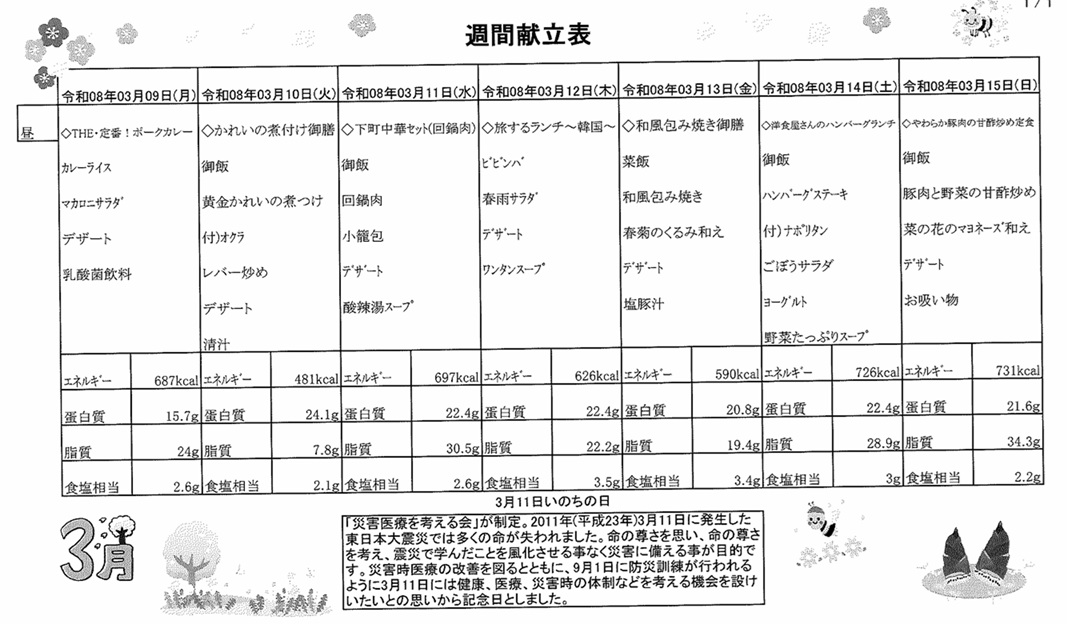 週間献立表
令和08年03月09日(月) 令和08年03月10日(火) 令和08年03月11日(水) 令和08年03月12日(木) 令和08年03月13日(金) 令和08年03月14日(土) 令和08年03月15日(日)
昼
◇THE・定番！ポークカレー
カレーライス
マカロニサラダ
デザート
乳酸菌飲料
◇かれいの煮付け御膳
御飯
黄金かれいの煮つけ
付)オクラ
レバー炒め
デザート
清汁
◇下町中華セット(回鍋肉)
御飯
回鍋肉
小籠包
デザート
酸辣湯スープ
◇旅するランチ～韓国～
ビビンバ
春雨サラダ
デザート
ワンタンスープ
◇和風包み焼き御膳
菜飯
和風包み焼き
春菊のくるみ和え
デザート
塩豚汁
◇洋食屋さんのハンバーグランチ
御飯
ハンバーグステーキ
付)ナポリタン
ごぼうサラダ
ヨーグルト
野菜たっぷりスープ
◇やわらか豚肉の甘酢炒め定食
御飯
豚肉と野菜の甘酢炒め
菜の花のマヨネーズ和え
デザート
お吸い物
エネルギー 687kcal エネルギー 481kcal エネルギー 697kcal エネルギー 626kcal エネルギー 590kcal エネルギー 726kcal エネルギー 731kcal
蛋白質 15.7g 蛋白質 24.1g 蛋白質 22.4g 蛋白質 22.4g 蛋白質 20.8g 蛋白質 22.4g 蛋白質 21.6g
脂質 24g 脂質 7.8g 脂質 30.5g 脂質 22.2g 脂質 19.4g 脂質 28.9g 脂質 34.3g
食塩相当 2.6g 食塩相当 2.1g 食塩相当 2.6g 食塩相当 3.5g 食塩相当 3.4g 食塩相当 3g 食塩相当 2.2g
3月11日いのちの日
「災害医療を考える会」が制定。2011年(平成23年)3月11日に発生した
東日本大震災では多くの命が失われました。命の尊さを思い、命の尊さ
を考え、震災で学んだことを風化させる事なく災害に備える事が目的で
す。災害時医療の改善を図るとともに、9月1日に防災訓練が行われる
ように3月11日には健康、医療、災害時の体制などを考える機会を設け
いたいとの思いから記念日としました。
3月